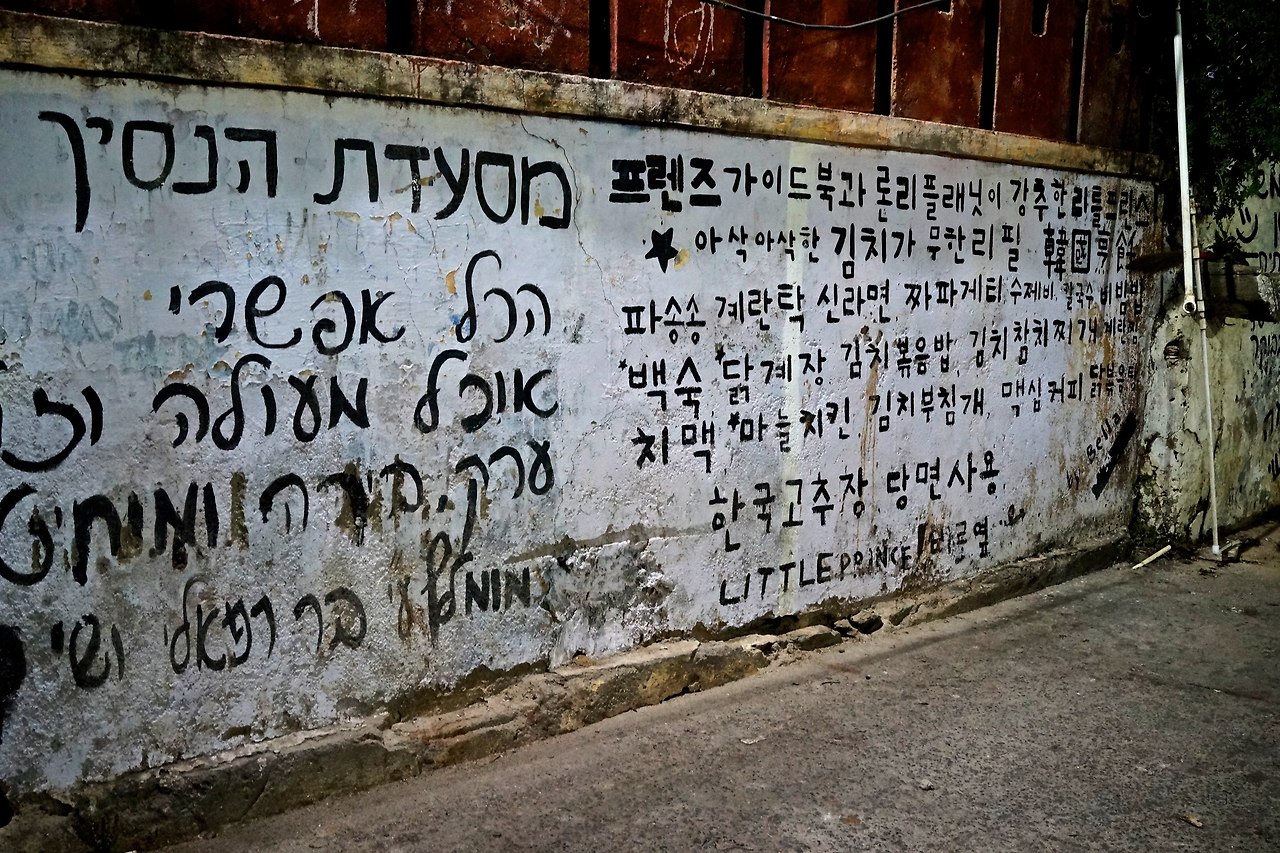 מסעדת הנסיך
הכל אפשרי
אוכל מעולה וזו
ערק, בירה ומוחיט
מומלץ ע״י בר רפאלי ושי
프렌즈 가이드북과 론리플래닛이 강추한 리틀프린스
★ 아삭아삭한 김치가 무한리필 韓國
파송송 계란탁 신라면, 짜파게티, 수제비, 칼국수, 비빔밥
*백숙, *닭계장, 김치볶음밥, 김치참치찌개, 계란찜
치맥, *마늘치킨, 김치부침개, 맥심커피, 닭볶음탕
한국고추장 당면사용.
LITTLE PRINCE / 바로옆
by Bella